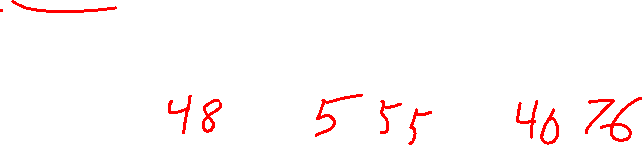 48 5 55 40 76